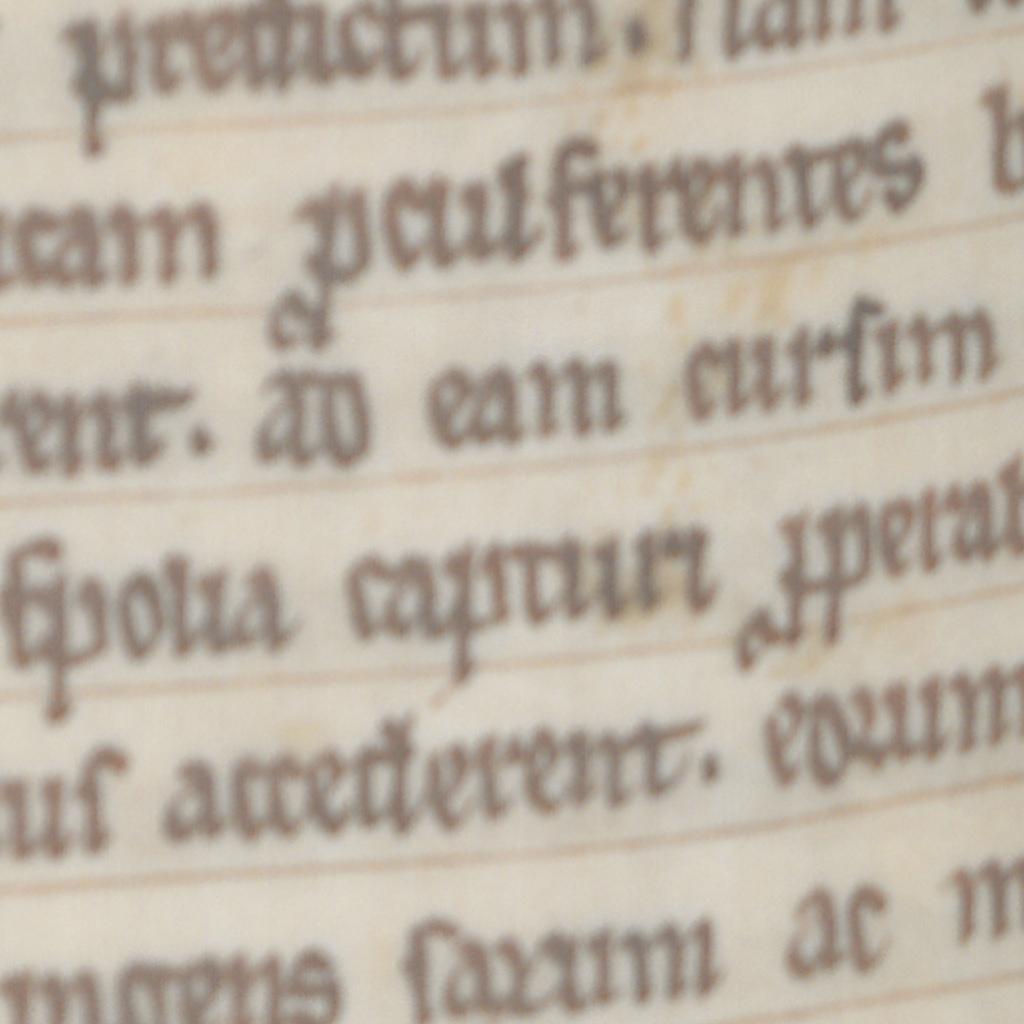 predictum. Nam
ꝓculferentes
rent. ad eam cursim
spolia capturi ꝓperat
us accederent. eorum
ingens saxum ac m